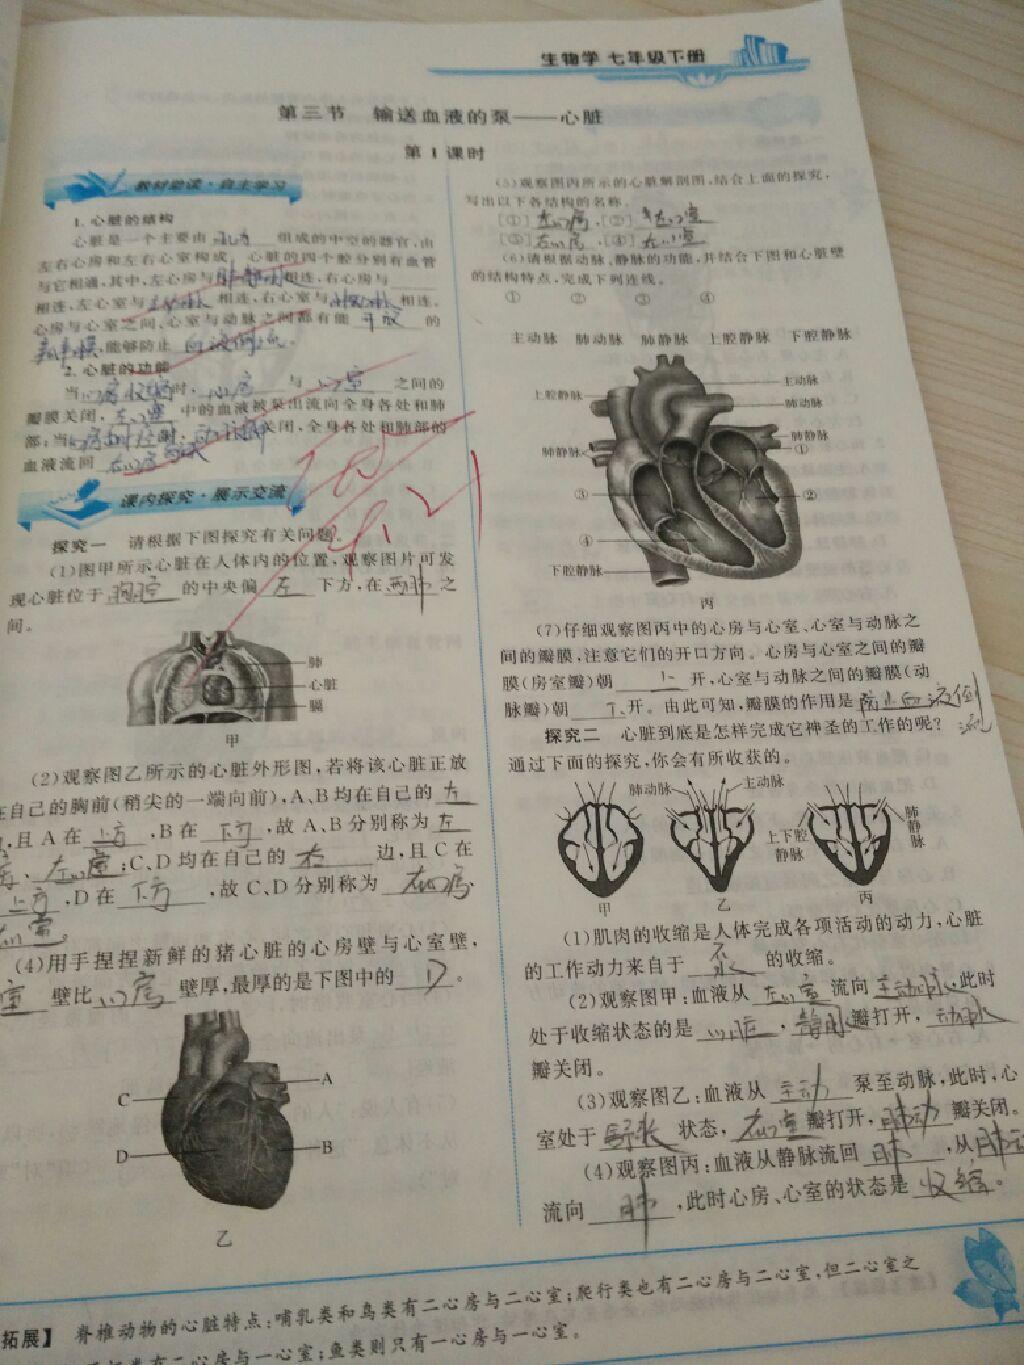 生物学 七年级下册
第三节 输送血液的泵——心脏
第1课时
教材助读·自主学习
1. 心脏的结构
心脏是一个主要由 肌肉 组成的中空的器官,由
左右心房和左右心室构成。心脏的四个腔分别有血管
与它相通,其中,左心房与 肺静脉 相连,右心房与
相连,左心室与 相连,右心室与 相连。
心房与心室之间、心室与动脉之间都有能 开放 的
,能够防止 血液倒流。
2. 心脏的功能
当 心房收缩 时, 心房 与 心室 之间的
瓣膜关闭, 左心室 中的血液被泵出流向全身各处和肺
部;当 时, 关闭,全身各处和肺部的
血液流回
课内探究·展示交流
探究一 请根据下图探究有关问题。
(1)图甲所示心脏在人体内的位置,观察图片可发
现心脏位于 胸腔 的中央偏 左 下方,在 两肺 之
间。
肺
心脏
膈
甲
(2)观察图乙所示的心脏外形图,若将该心脏正放
在自己的胸前(稍尖的一端向前),A、B均在自己的 左
,且A在 上方 ,B在 下方 ,故A、B分别称为 左
、 左心室 ;C、D均在自己的 右 边,且C在
上方 ,D在 下方 ,故C、D分别称为 右心房、
心室。
(4)用手捏捏新鲜的猪心脏的心房壁与心室壁,
室 壁比 心房 壁厚,最厚的是下图中的 D 。
A
C
B
D
乙
(5)观察图丙所示的心脏解剖图,结合上面的探究,
写出以下各结构的名称。
[①] 左心房 、[②] 左心室
[③] 右心房 、[④] 右心室
(6)请根据动脉、静脉的功能,并结合下图和心脏壁
的结构特点,完成下列连线。
① ② ③ ④
主动脉 肺动脉 肺静脉 上腔静脉 下腔静脉
主动脉
上腔静脉
肺动脉
肺静脉
肺静脉
①
③
②
④
下腔静脉
丙
(7)仔细观察图丙中的心房与心室、心室与动脉之
间的瓣膜,注意它们的开口方向。心房与心室之间的瓣
膜(房室瓣)朝 上 开,心室与动脉之间的瓣膜(动
脉瓣)朝 下 开。由此可知,瓣膜的作用是 防止血液倒
流
探究二 心脏到底是怎样完成它神圣的工作的呢?
通过下面的探究,你会有所收获的。
肺动脉 主动脉
上下腔静脉
肺静脉
甲 乙 丙
(1)肌肉的收缩是人体完成各项活动的动力,心脏
的工作动力来自于 的收缩。
(2)观察图甲:血液从 左心室 流向 主动脉,此时
处于收缩状态的是 心脏 , 静脉 瓣打开, 动脉
瓣关闭。
(3)观察图乙:血液从 主动 泵至动脉,此时,心
室处于 舒张 状态, 右心室 瓣打开, 肺动 瓣关闭。
(4)观察图丙:血液从静脉流回 肺 ,从 肺动
流向 肺 ,此时心房、心室的状态是 收缩 。
拓展】 脊椎动物的心脏特点:哺乳类和鸟类有二心房与二心室;爬行类也有二心房与二心室,但二心室之
有二心房与一心室;鱼类则只有一心房与一心室。